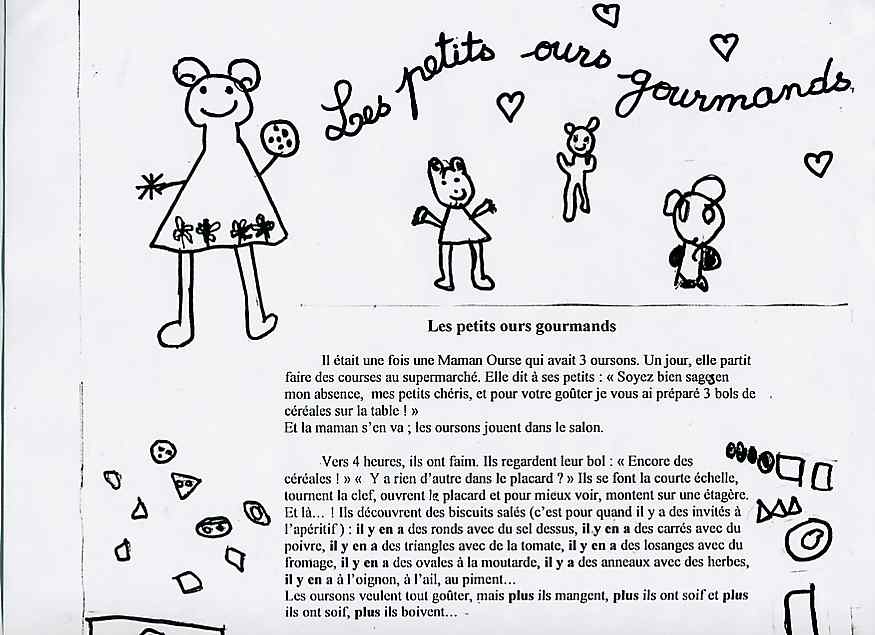 Les petits ours gourmands
Les petits ours gourmands
Il était une fois une Maman Ourse qui avait 3 oursons. Un jour, elle partit
faire des courses au supermarché. Elle dit à ses petits : « Soyez bien sages en
mon absence, mes petits chéris, et pour votre goûter je vous ai préparé 3 bols de
céréales sur la table ! »
Et la maman s'en va ; les oursons jouent dans le salon.
Vers 4 heures, ils ont faim. Ils regardent leur bol : « Encore des
céréales ! » « Y a rien d'autre dans le placard ? » Ils se font la courte échelle,
tournent la clef, ouvrent le placard et pour mieux voir, montent sur une étagère.
Et là... ! Ils découvrent des biscuits salés (c'est pour quand il y a des invités à
l'apéritif) : il y en a des ronds avec du sel dessus, il y en a des carrés avec du
poivre, il y en a des triangles avec de la tomate, il y en a des losanges avec du
fromage, il y en a des ovales à la moutarde, il y a des anneaux avec des herbes,
il y en a à l'oignon, à l'ail, au piment...
Les oursons veulent tout goûter, mais plus ils mangent, plus ils ont soif et plus
ils ont soif, plus ils boivent...